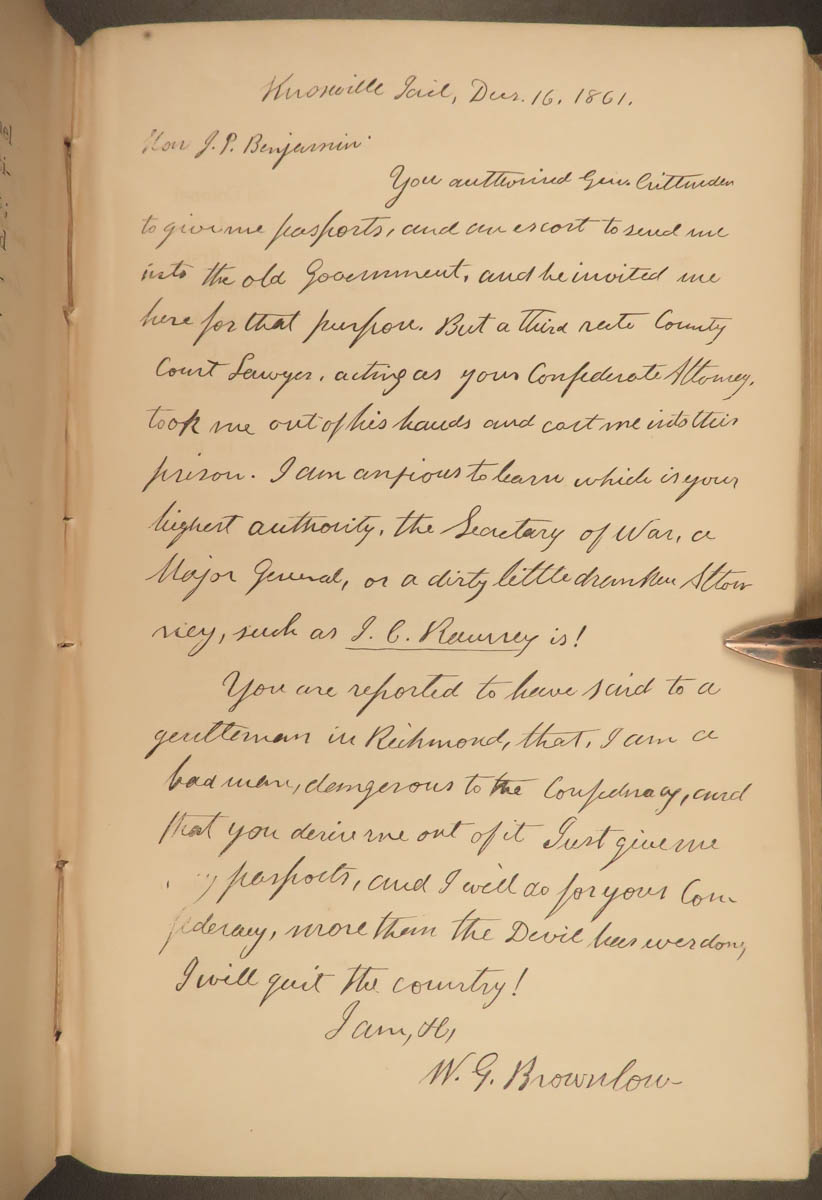 Knoxville Jail, Dec. 16. 1861.
Hon J. P. Benjamin.
You authorised Gen. Crittenden
to give me passports, and an escort to send me
into the old Government, and he invited me
here for that purpose. But a third rate County
Court Lawyer, acting as your Confederate Attorney,
took me out of his hands and cast me into this
prison. I am anxious to learn which is your
highest authority, the Secretary of War, a
Major General, or a dirty little drunken Attor
ney, such as J. C. Ramsey is!
You are reported to have said to a
gentleman in Richmond, that, I am a
bad man, dangerous to the Confederacy, and
that you desire me out of it Just give me
my passports, and I will do for your Con-
federacy, more than the Devil has ever done,
I will quit the country!
I am, &c,
W. G. Brownlow